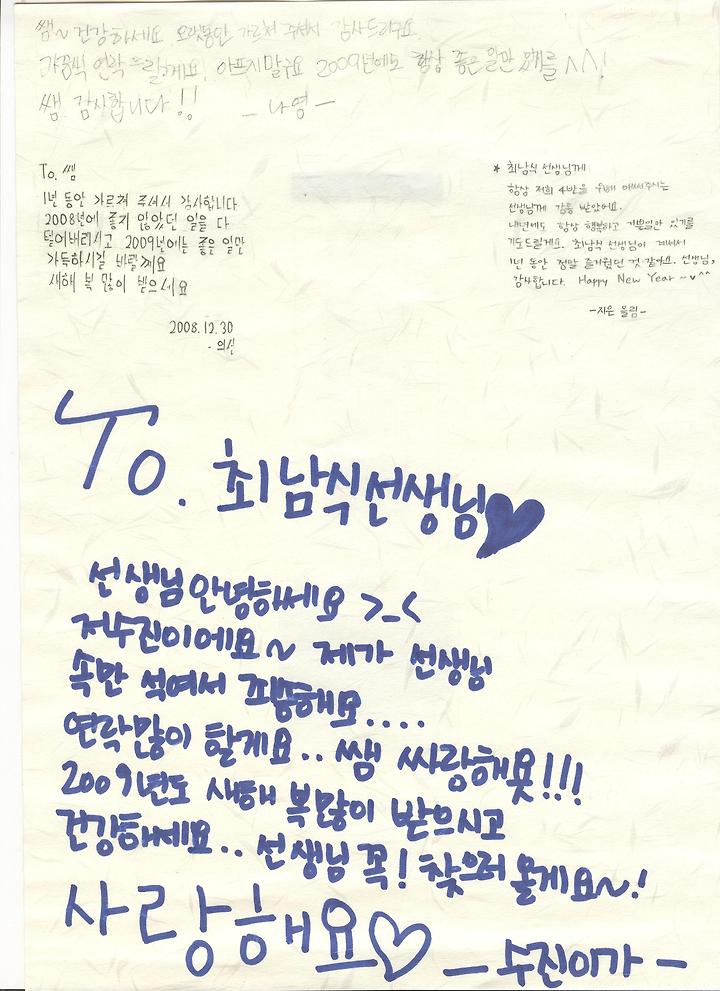 쌤~ 건강하세요 오랫동안 가르쳐 주셔서 감사드리구요
가끔씩 연락 드릴게요! 아프지말구요 2009년에도 항상 좋은 일만 있게를 ^^!
쌤 감사합니다!! - 나영 -
To. 쌤
1년 동안 가르쳐 주셔서 감사합니다
2008년에 좋지 않았던 일을 다
털어버리시고 2009년에는 좋은 일만
가득하시길 바랄께요
새해 복 많이 받으세요
2008.12.30
- 의신
* 최남식 선생님께
항상 저희 4반을 위해 애써주시는
선생님께 감동 받았어요.
내년에도 항상 행복하고 기쁜일만 있기를
기도드릴게요. 최남식 선생님이 계셔서
1년 동안 정말 즐거웠던 것 같아요. 선생님,
감사합니다. Happy New Year ~♥^^
- 지은 올림 -
To. 최남식선생님♥
선생님 안녕하쎄요 >_<
저수진이에요~ 제가 선생님
속만 석여서 죄송해요....
연락많이 할게요.. 쌤 싸랑해욧!!!
2009년도 새해 복많이 받으시고
건강하세요.. 선생님 꼭! 찾으러 올게요~!
사랑해요♡ - 수진이가 -